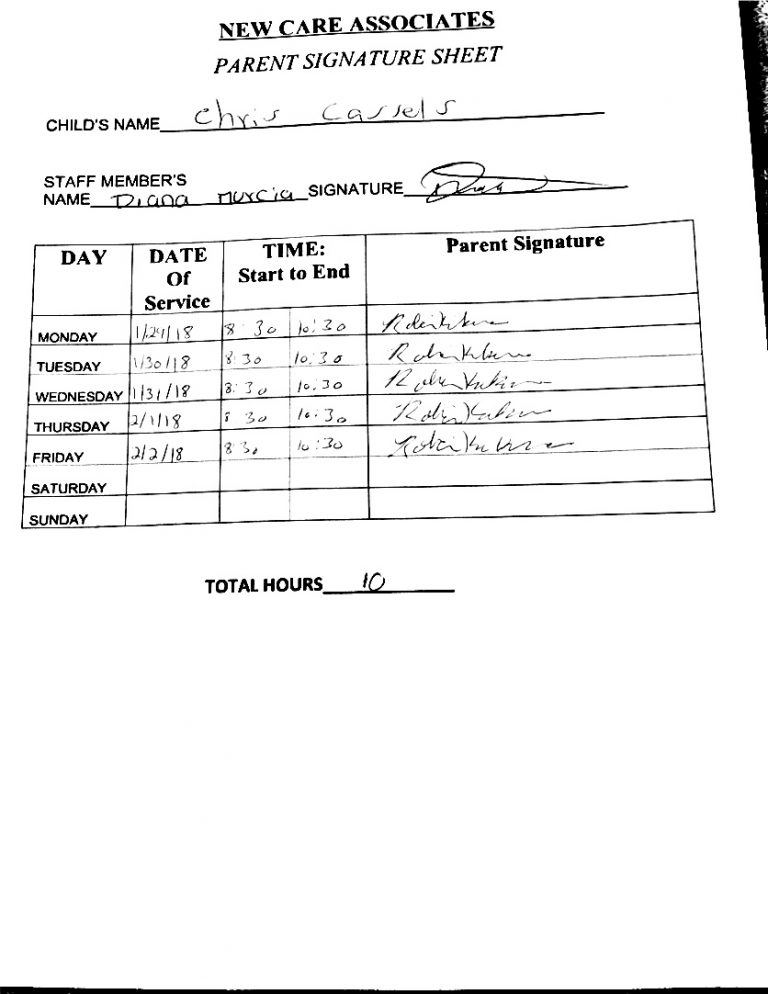 NEW CARE ASSOCIATES
PARENT SIGNATURE SHEET
CHILD'S NAME Chris Cassels
STAFF MEMBER'S
NAME Diana Murcia SIGNATURE
DAY DATE Of Service TIME: Start to End Parent Signature
MONDAY 1/29/18 8:30 10:30
TUESDAY 1/30/18 8:30 10:30
WEDNESDAY 1/31/18 8:30 10:30
THURSDAY 2/1/18 8 30 10:30
FRIDAY 2/2/18 8 30 10:30
SATURDAY
SUNDAY
TOTAL HOURS 10